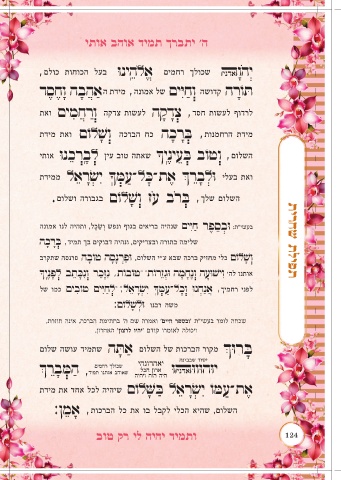 ה' יתברך תמיד אוהב אותי
יְהֹוָה שכולך רחמים אֱלֹהֵינוּ בעל הכוחות כולם,
תּוֹרָה קדושה וְחַיִּים של אמונה, מידת הַאַהֲבָה וָחֶסֶד
לרדוף לעשות חסד, צְדָקָה לעשות צדקה וְרַחֲמִים ואת
מידת הרחמנות, בְּרָכָה כח הברכה וְשָׁלוֹם ואת מידת
השלום, וְטוֹב בְּעֵינֶיךָ שאתה טוב עין לְבָרְכֵנוּ אותי
ואת בעלי וּלְבָרֵךְ אֶת-כָּל-עַמְּךָ יִשְׂרָאֵל ממידת
השלום שלך, בְּרֹב עֹז וְשָׁלוֹם בגבורה ושלום.
בעשי"ת: וּבְסֵפֶר חַיִּים שנהיה בריאים בגוף ונפש וְשֵׂכֶל, ותהיה לנו אמונה
שלימה בתורה ובצדיקים, ונהיה דבוקים בך תמיד, בְּרָכָה
וְשָׁלוֹם כלי מחזיק ברכה שבא ע"י השלום, וּפַרְנָסָה טוֹבָה פרנסה שתקרב
אותנו לה' וִישׁוּעָה וְנֶחָמָה וּגְזֵרוֹת טוֹבוֹת, נִזָּכֵר וְנִכָּתֵב לְפָנֶיךָ
לפני רחמיך, אֲנַחְנוּ וְכָל-עַמְּךָ יִשְׂרָאֵל, לְחַיִּים טוֹבִים כמו של
משה רבנו וּלְשָׁלוֹם:
שכחה לומר בעשי"ת 'ובספר חיים' ואמרה שם ה' בחתימת הברכה, אינה חוזרת,
ויכולה לאומרו קודם 'יהיו לרצון' האחרון.
בָּרוּךְ מקור הברכות של השלום אַתָּה שתמיד עושה שלום
הַמְבָרֵךְ
אֶת-עַמּוֹ יִשְׂרָאֵל בַּשָּׁלוֹם שיהיה לכל אחד את מידת
השלום, שהיא הכלי לקבל בו את כל הברכות, אָמֵן:
ותמיד יהיה לי רק טוב
תפילת שחרית
124